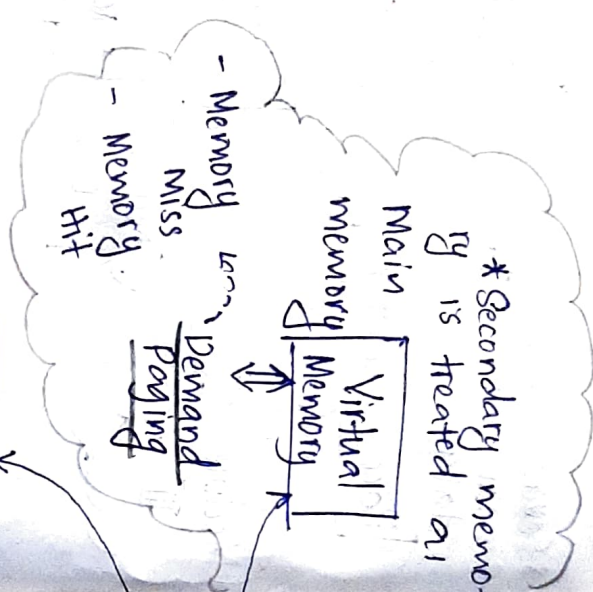 * Secondary memo-
ry is treated as
Main
memory
Virtual
Memory
Demand
Paging
- Memory
Miss
- Memory
Hit